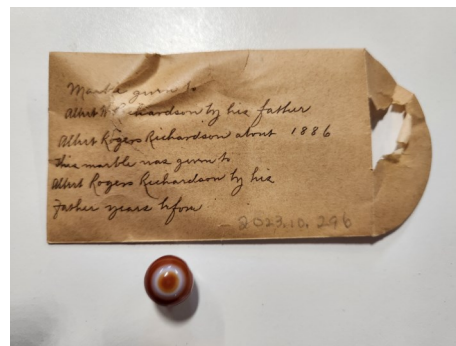 Marble given to
Albert W Richardson by his father
Albert Rogers Richardson about 1886
this marble was given to
Albert Rogers Richardson by his
father years before
2023.10.296